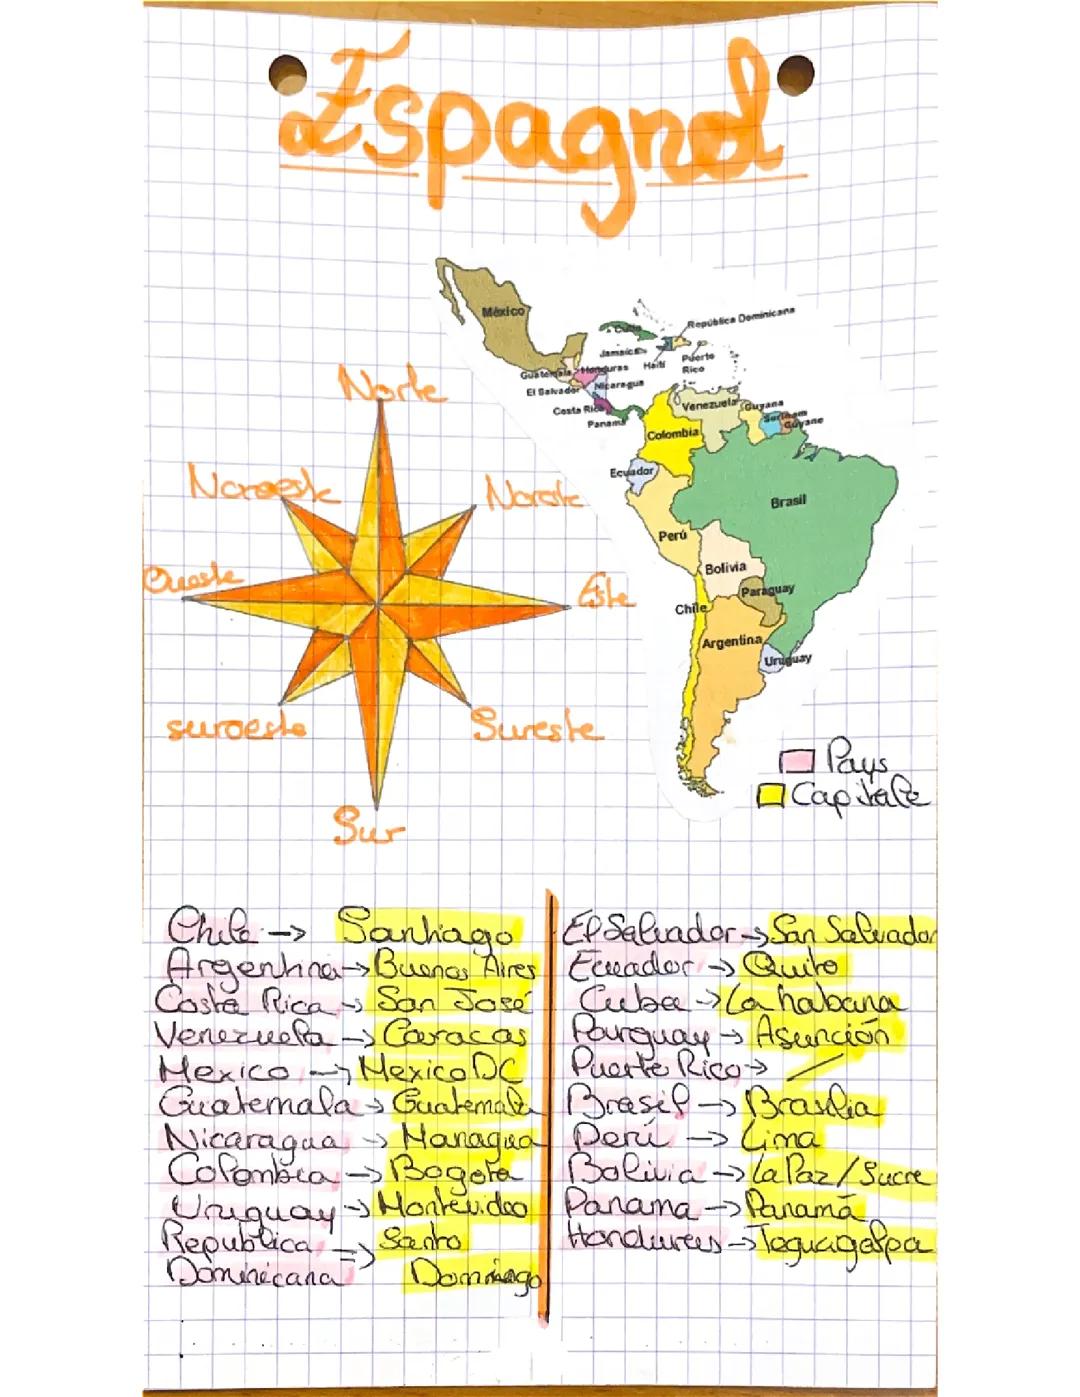 Espagnol
México
Cuba
República Dominicana
Jamaica
Haití
Puerto
Rico
Guatemala
Honduras
El Salvador
Nicaragua
Costa Rica
Panamá
Venezuela
Guyana
Surinam
Guyane
Colombia
Ecuador
Brasil
Perú
Bolivia
Paraguay
Chile
Argentina
Uruguay
Norte
Noroeste
Noreste
Oueste
Este
suroeste
Sureste
Sur
Pays
Capitale
Chile → Santiago
Argentina → Buenos Aires
Costa Rica → San José
Venezuela → Caracas
Mexico → Mexico DC
Guatemala → Guatemala
Nicaragua → Managua
Colombia → Bogota
Uruguay → Montevideo
Republica → Santo
Dominicana Domingo
El Salvador → San Salvador
Ecuador → Quito
Cuba → La habana
Parguay → Asunción
Puerto Rico → /
Brasil → Brasilia
Perú → Lima
Bolivia → La Paz / Sucre
Panama → Panamá
Honduras → Teguagalpa